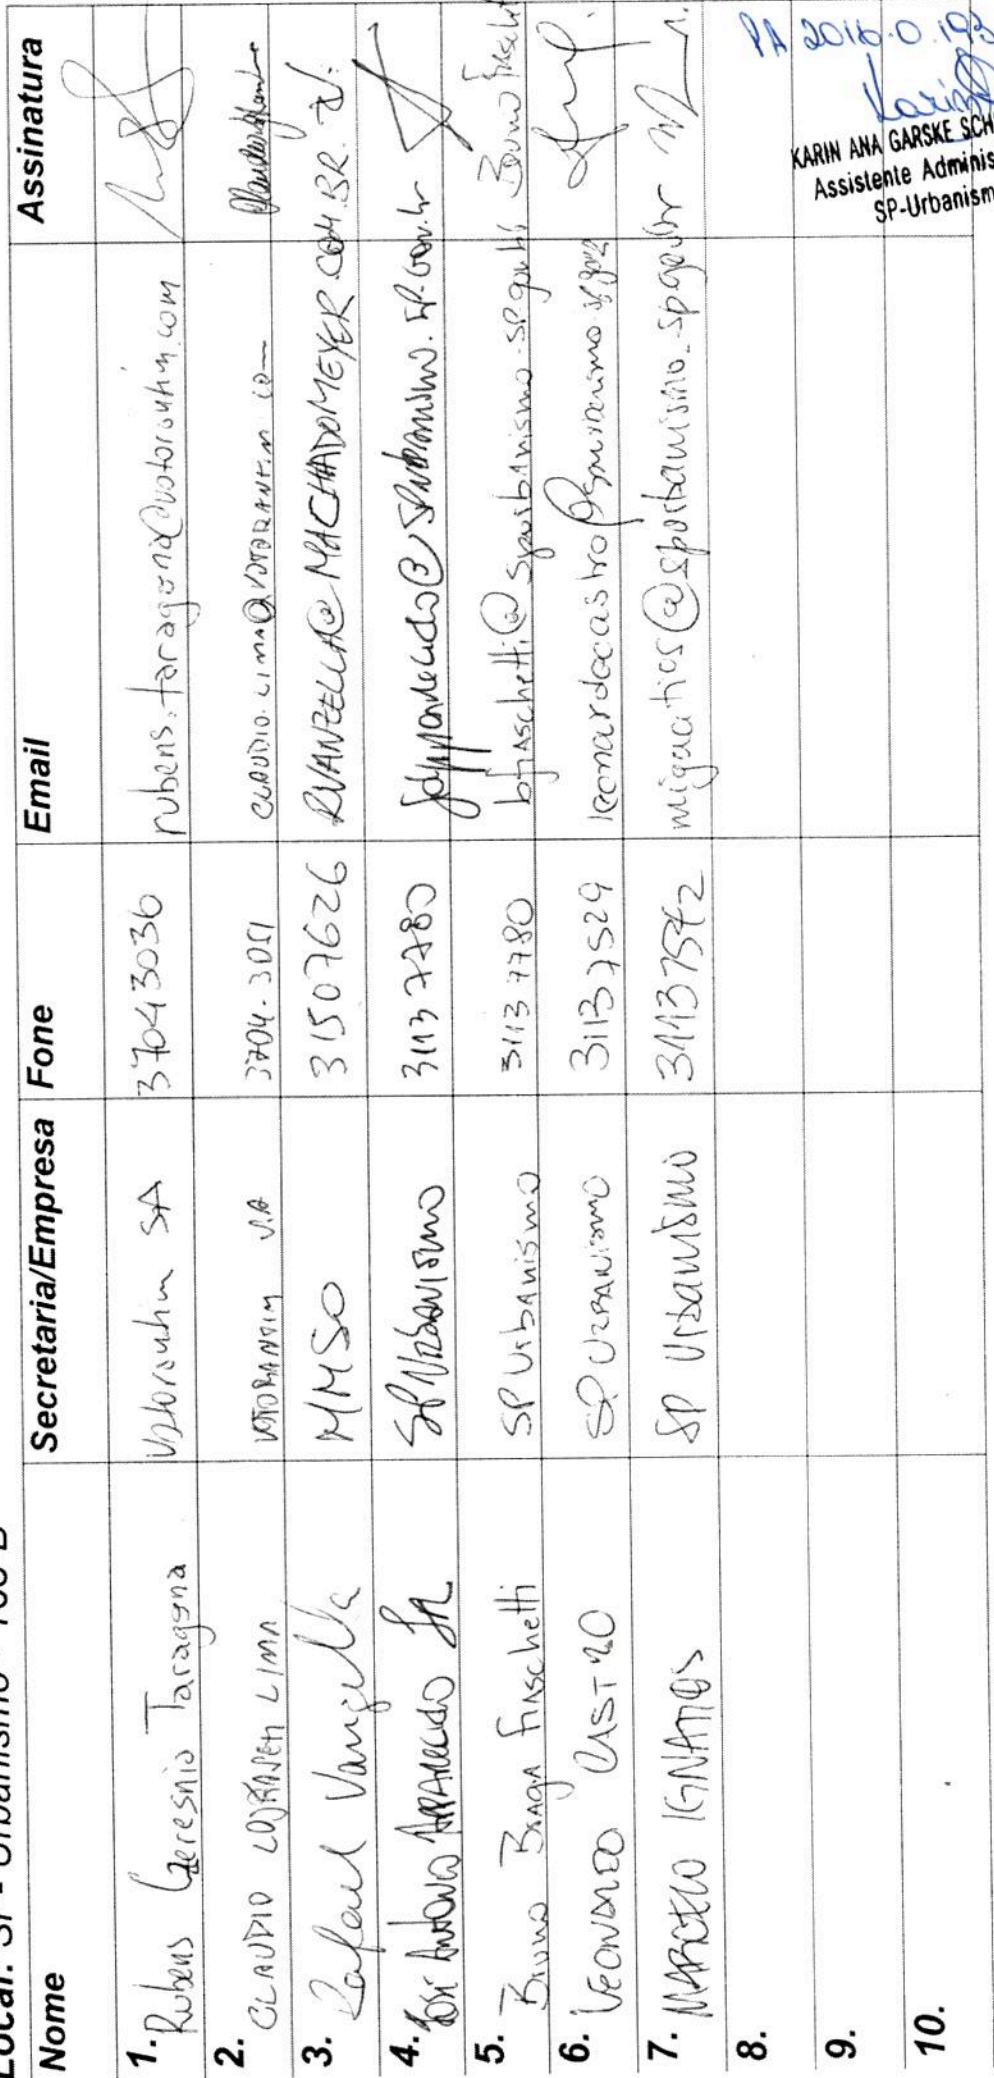 Local: SP - Urbanismo - 16º B
Nome Secretaria/Empresa Fone Email Assinatura
1. Rubens Taragona Votorantim SA 37043036 rubens.taragona@votorantim.com
2. CLAUDIO LIMA VOTORANTIM S.A 3704-3051 CLAUDIO.LIMA@VOTORANTIM.COM
3. Rafael Vanzella MMSO 31507626 RVANZELLA@MACHADOMEYER.COM.BR
4. José Antonio Aparecido Jr. SP Urbanismo 3113 7780 @SPURBANISMO.SP.GOV.br
5. Bruno Braga Fiaschetti SP Urbanismo 3113 7780 bfiaschetti@spurbanismo.sp.gov.br Bruno Fiaschetti
6. LEONARDO CASTRO SP URBANISMO 31137529 leonardocastro@spurbanismo.sp.gov
7. MARCELO IGNATIOS SP Urbanismo 31137572 mignatios@spurbanismo.sp.gov.br
8.
9.
10.
PA 2016.0.193
Karin
KARIN ANA GARSKE SCH
Assistente Adminis
SP-Urbanism